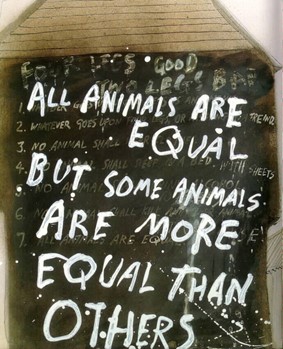 FOUR LEGS GOOD
TWO LEGS BAD
ALL ANIMALS ARE
EQUAL
BUT SOME ANIMALS
ARE MORE
EQUAL THAN
OTHERS
1.
2. WHATEVER GOES UPON
3. NO ANIMAL SHALL
4. SHALL SLEEP IN A BED WITH SHEETS
5. NO ANIMAL ALCOHOL
6. NO ANIMAL SHALL KILL ANY ANIMAL
7. ALL ANIMALS ARE EQUAL